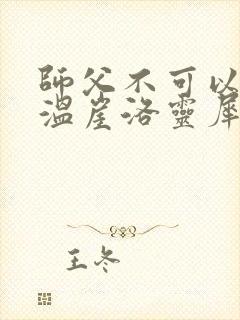 師父不可以
溫崖洛靈犀
王冬